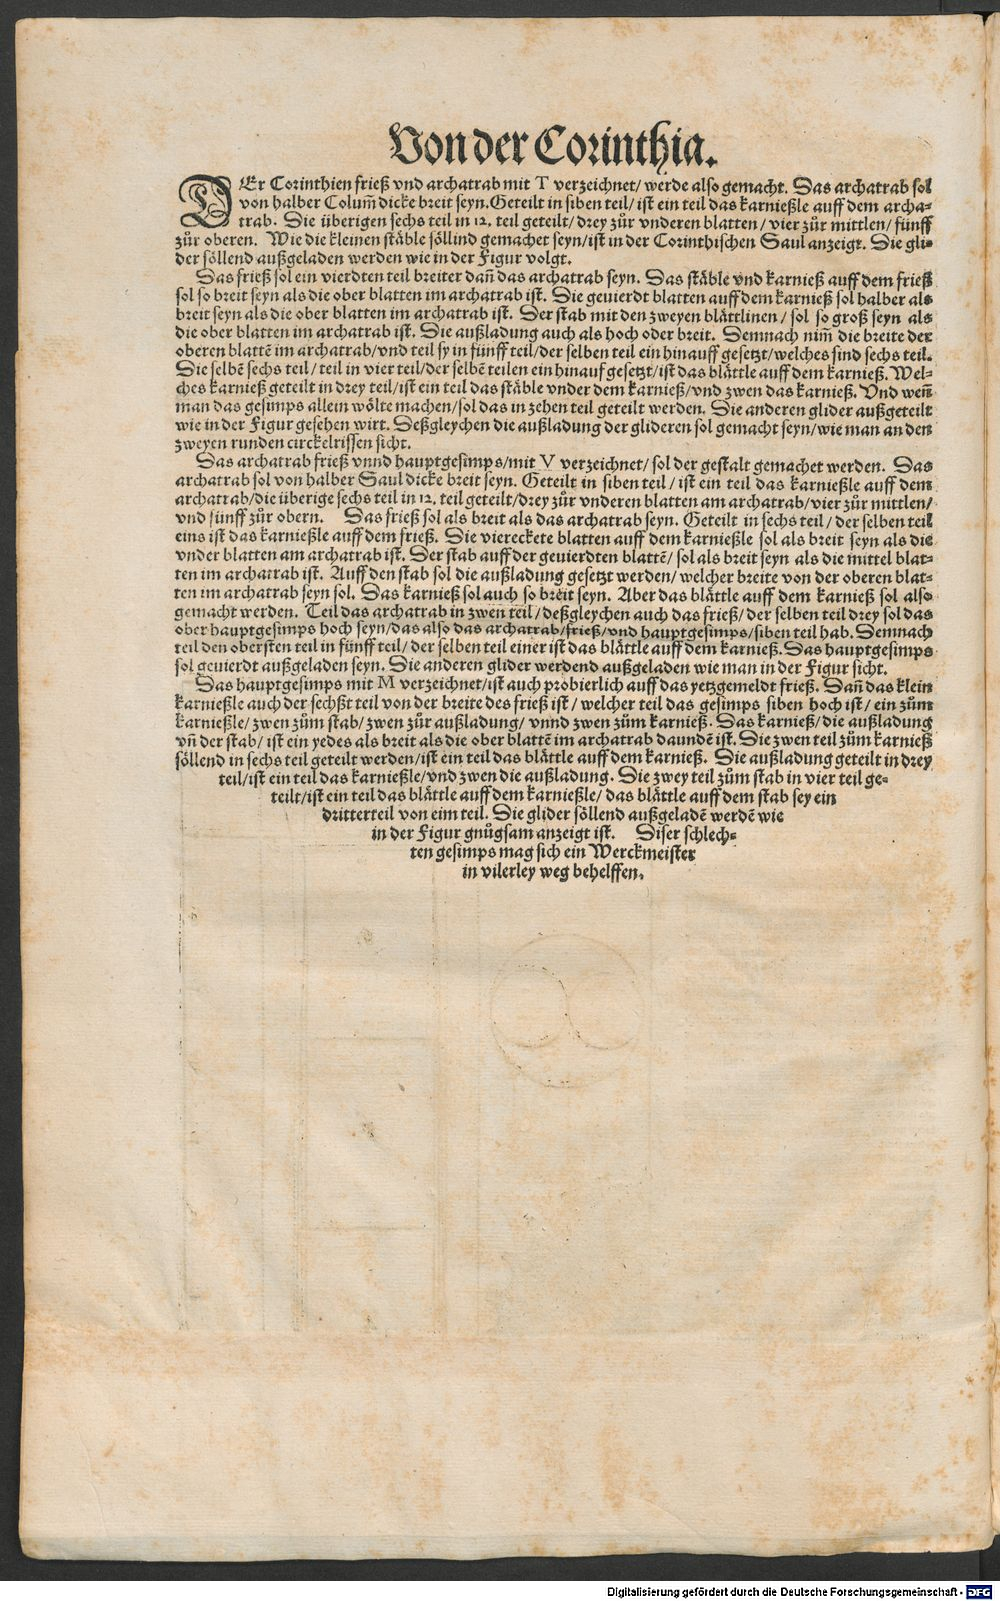 Von der Corinthia.
DEr Corinthien frieß vnd archatrab mit T verzeichnet/ werde also gemacht. Das archatrab sol
von halber Colum̃ dicke breit seyn. Geteilt in siben teil/ ist ein teil das karnießle auff dem archa-
trab. Die überigen sechs teil in 12. teil geteilt/ drey zůr vnderen blatten/ vier zůr mittlen/ fünff
zůr oberen. Wie die kleinen stäble söllind gemachet seyn/ ist in der Corinthischen Saul anzeigt. Die gli-
der söllend außgeladen werden wie in der Figur volgt.
Das frieß sol ein vierdten teil breiter dañ das archatrab seyn. Das stäble vnd karnieß auff dem frieß
sol so breit seyn als die ober blatten im archatrab ist. Die geuierdt blatten auff dem karnieß sol halber als
breit seyn als die ober blatten im archatrab ist. Der stab mit den zweyen blättlinen/ sol so groß seyn als
die ober blatten im archatrab ist. Die außladung auch als hoch oder breit. Demnach nim̃ die breite der
oberen blattẽ im archatrab/ vnd teil sy in fünff teil/ der selben teil ein hinauff gesetzt/ welches sind sechs teil.
Die selbẽ sechs teil/ teil in vier teil/ der selbẽ teilen ein hinauf gesetzt/ ist das blättle auff dem karnieß. Wel-
ches karnieß geteilt in drey teil/ ist ein teil das stäble vnder dem karnieß/ vnd zwen das karnieß. Vnd weñ
man das gesimps allein wölte machen/ sol das in zehen teil geteilt werden. Die anderen glider außgeteilt
wie in der Figur gesehen wirt. Deßgleychen die außladung der glideren sol gemacht seyn/ wie man an den
zweyen runden circkelrissen sicht.
Das archatrab frieß vnnd hauptgesimps/ mit V verzeichnet/ sol der gestalt gemachet werden. Das
archatrab sol von halber Saul dicke breit seyn. Geteilt in siben teil/ ist ein teil das karnießle auff dem
archatrab/ die überige sechs teil in 12. teil geteilt/ drey zůr vnderen blatten am archatrab/ vier zůr mittlen/
vnd fünff zůr obern. Das frieß sol als breit als das archatrab seyn. Geteilt in sechs teil/ der selben teil
eins ist das karnießle auff dem frieß. Die viereckete blatten auff dem karnießle sol als breit seyn als die
vnder blatten am archatrab ist. Der stab auff der geuierdten blattẽ/ sol als breit seyn als die mittel blat-
ten im archatrab ist. Auff den stab sol die außladung gesetzt werden/ welcher breite von der oberen blat-
ten im archatrab seyn sol. Das karnieß sol auch so breit seyn. Aber das blättle auff dem karnieß sol also
gemacht werden. Teil das archatrab in zwen teil/ deßgleychen auch das frieß/ der selben teil drey sol das
ober hauptgesimps hoch seyn/ das also das archatrab/ frieß/ vnd hauptgesimps/ siben teil hab. Demnach
teil den obersten teil in fünff teil/ der selben teil einer ist das blättle auff dem karnieß. Das hauptgesimps
sol geuierdt außgeladen seyn. Die anderen glider werdend außgeladen wie man in der Figur sicht.
Das hauptgesimps mit M verzeichnet/ ist auch probierlich auff das yetzgemeldt frieß. Dañ das klein
karnießle auch der sechßt teil von der breite des frieß ist/ welcher teil das gesimps siben hoch ist/ ein zům
karnießle/ zwen zům stab/ zwen zůr außladung/ vnnd zwen zům karnieß. Das karnieß/ die außladung
vñ der stab/ ist ein yedes als breit als die ober blattẽ im archatrab daundẽ ist. Die zwen teil zům karnieß
söllend in sechs teil geteilt werden/ ist ein teil das blättle auff dem karnieß. Die außladung geteilt in drey
teil/ ist ein teil das karnießle/ vnd zwen die außladung. Die zwey teil zům stab in vier teil ge-
teilt/ ist ein teil das blättle auff dem karnießle/ das blättle auff dem stab sey ein
dritterteil von eim teil. Die glider söllend außgeladẽ werdẽ wie
in der Figur gnůgsam anzeigt ist. Diser schlech-
ten gesimps mag sich ein Werckmeister
in vilerley weg behelffen.
Digitalisierung gefördert durch die Deutsche Forschungsgemeinschaft - DFG